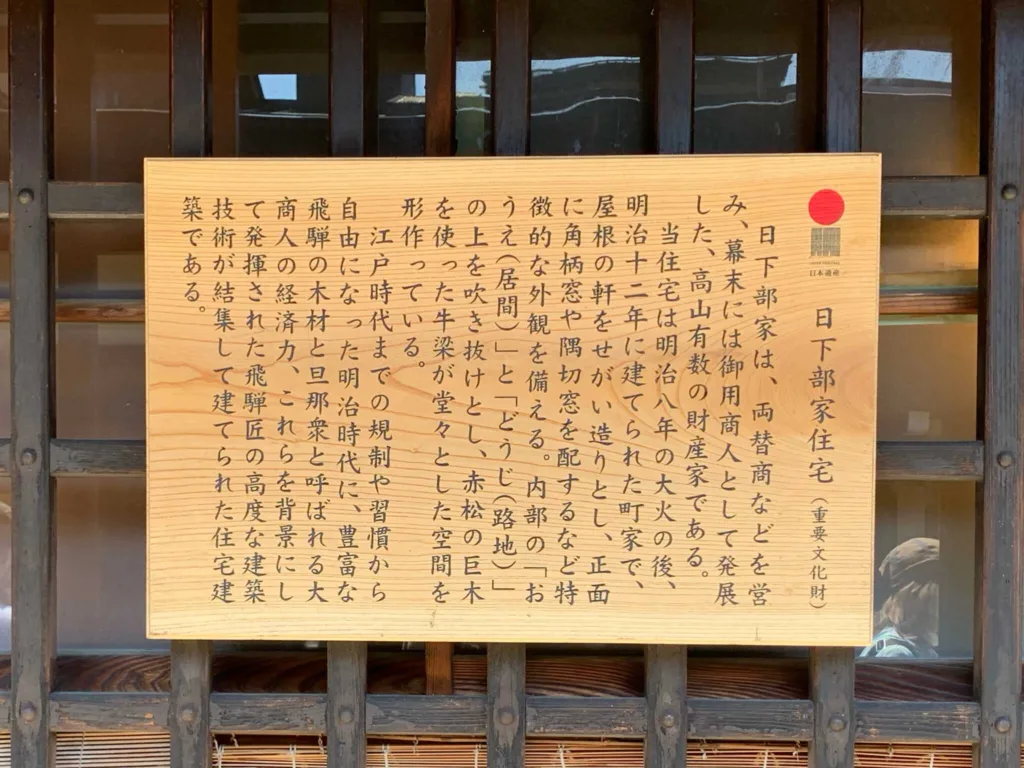 日本遺産
日下部家住宅(重要文化財)
日下部家は、両替商などを営
み、幕末には御用商人として発展
した、高山有数の財産家である。
当住宅は明治八年の大火の後、
明治十二年に建てられた町家で、
屋根の軒をせがい造りとし、正面
に角柄窓や隅切窓を配するなど特
徴的な外観を備える。内部の「お
うえ(居間)」と「どうじ(路地)」
の上を吹き抜けとし、赤松の巨木
を使った牛梁が堂々とした空間を
形作っている。
江戸時代までの規制や習慣から
自由になった明治時代に、豊富な
飛騨の木材と旦那衆と呼ばれる大
商人の経済力、これらを背景にし
て発揮された飛騨匠の高度な建築
技術が結集して建てられた住宅建
築である。